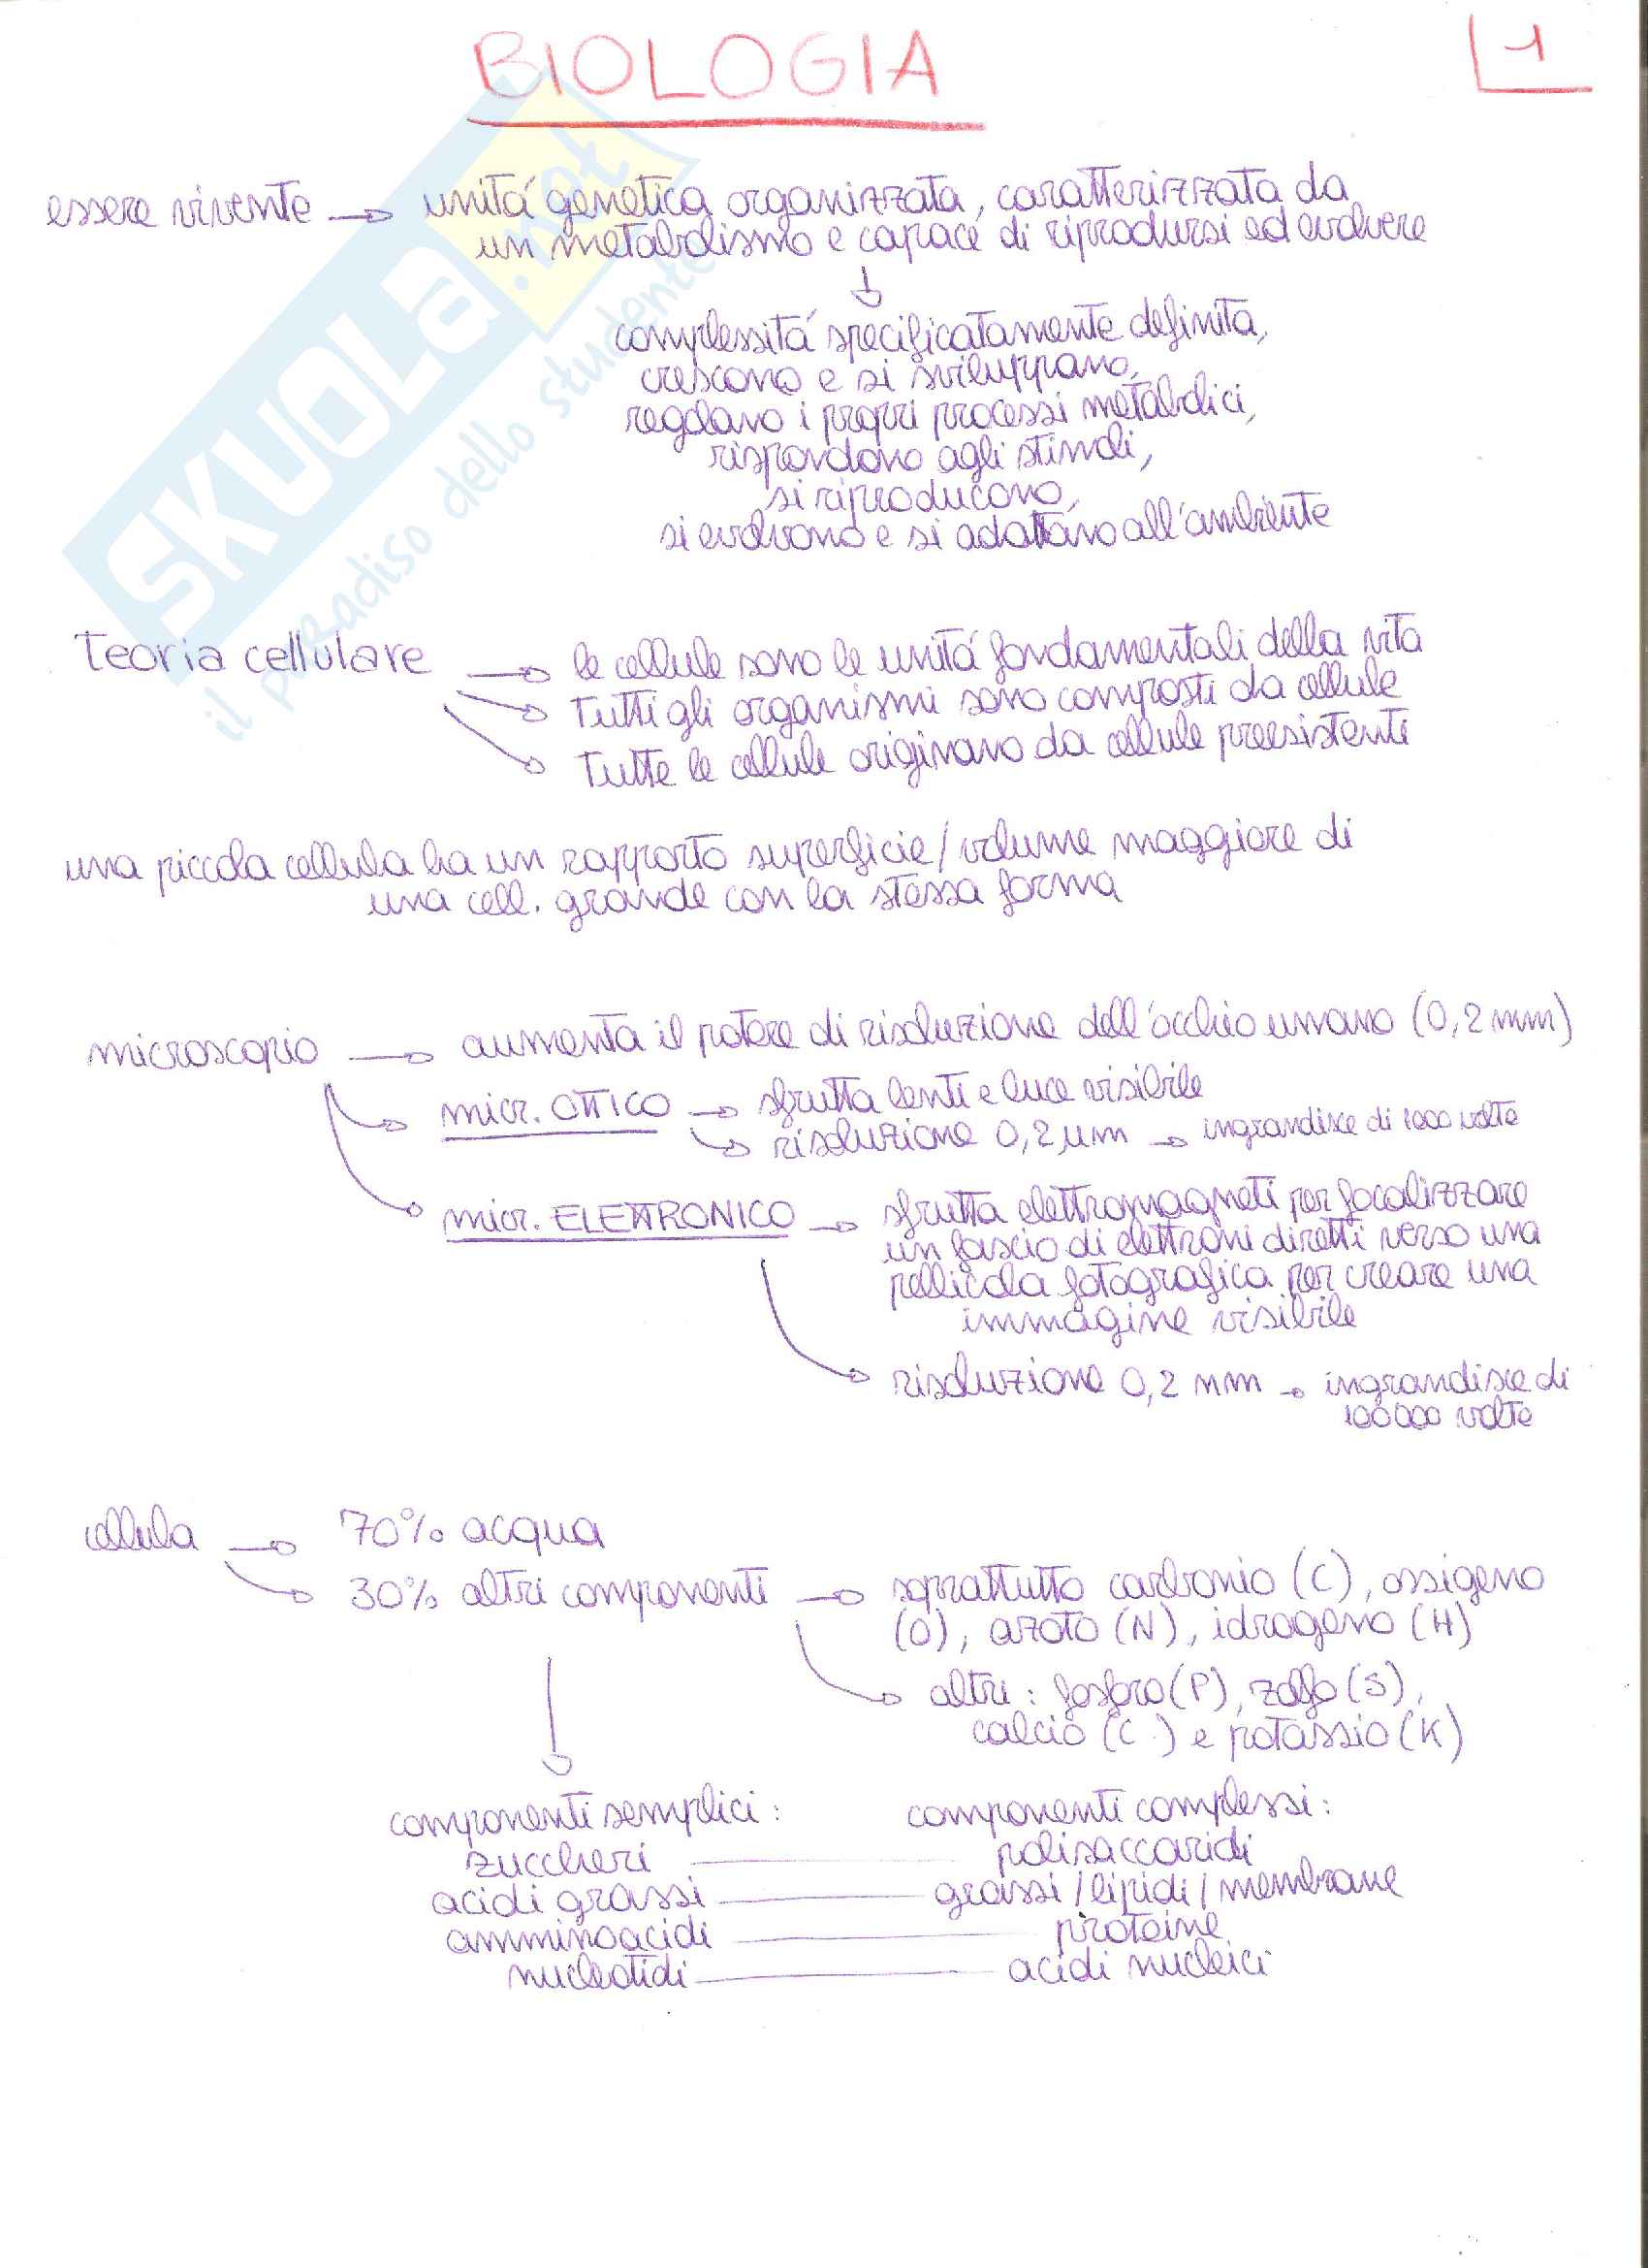 BIOLOGIA
1
essere vivente → unitá genetica organizzata, caratterizzata da
un metabolismo e capace di riprodursi ed evolvere
↓
complessitá specificatamente definita,
crescono e si sviluppano,
regolano i propri processi metabolici,
rispondono agli stimoli,
si riproducono,
si evolvono e si adattano all'ambiente
Teoria cellulare → le cellule sono le unitá fondamentali della vita
→ tutti gli organismi sono composti da cellule
→ tutte le cellule originano da cellule preesistenti
una piccola cellula ha un rapporto superficie/volume maggiore di
una cell. grande con la stessa forma
microscopio → aumenta il potere di risoluzione dell'occhio umano (0,2 mm)
→ micr. OTTICO → sfrutta lenti e luce visibile
→ risoluzione 0,2 µm → ingrandisce di 1000 volte
→ micr. ELETTRONICO → sfrutta elettromagneti per focalizzare
un fascio di elettroni diretti verso una
pellicola fotografica per creare una
immagine visibile
→ risoluzione 0,2 nm → ingrandisce di
100000 volte
cellula → 70% acqua
→ 30% altri componenti → soprattutto carbonio (C), ossigeno
(O), azoto (N), idrogeno (H)
→ altri: fosforo (P), zolfo (S),
calcio (C ) e potassio (K)
componenti semplici: componenti complessi:
zuccheri — polisaccaridi
acidi grassi — grassi/lipidi/membrane
amminoacidi — proteine
nucleotidi — acidi nucleici
SKUOLA.net
il paradiso dello studente